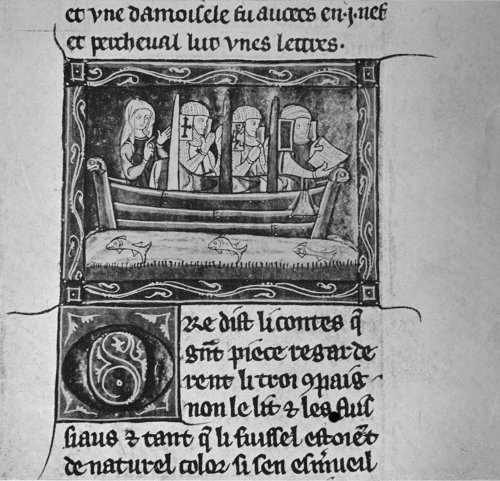 et vne damoisele fu auoecs en .j. nef
et percheual lut vnes lettres.
ORe dist li contes q̃
gñt piece regar de
rent li troi ꝯpaig
non le lit & les fuis
siaus & tant q̃ li fuissel estoiẽt
de naturel color si sen esm̃ueil